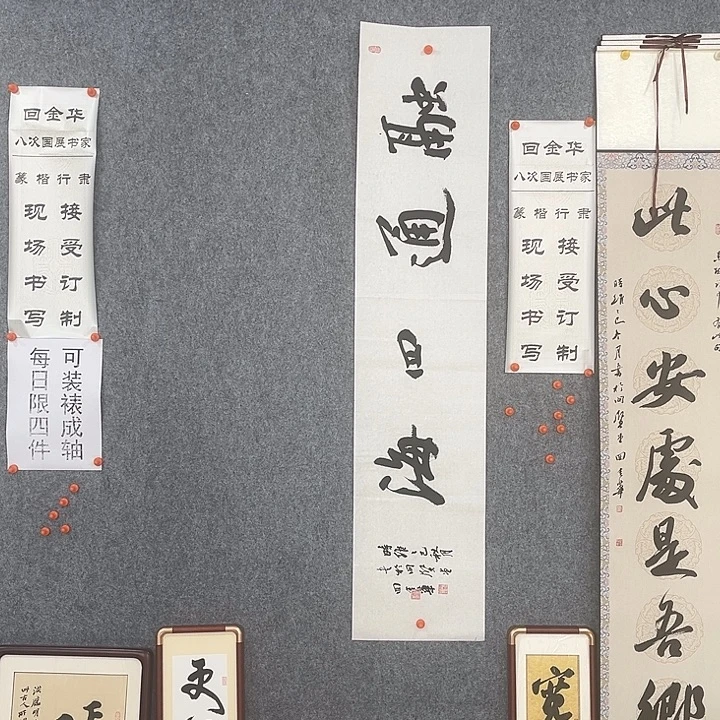 回金华
八次国展书家
篆楷行隶
接受订制
现场书写
可装裱成轴
每日限四件
通四海
回金华
八次国展书家
篆楷行隶
接受订制
现场书写
此心安處是吾鄉
更
寬